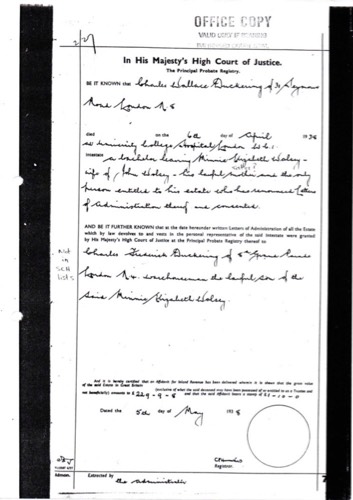 OFFICE COPY
In His Majesty's High Court of Justice.
The Principal Probate Registry.
BE IT KNOWN that Charles Wallace Duckering of 31 Seymour
Road London N 8
died on the 6th day of April 1938
at University College Hospital London W.C.1
intestate a bachelor leaving Minnie Elizabeth Halsey
wife of John Halsey his lawful mother and the only
person entitled to his estate who has renounced Letters
of Administration thereof and consented.
AND BE IT FURTHER KNOWN that at the date hereunder written Letters of Administration of all the Estate
which by law devolves to and vests in the personal representative of the said intestate were granted
by His Majesty's High Court of Justice at the Principal Probate Registry thereof to
Charles Frederick Duckering of
London N. warehouseman the lawful son of the
said Minnie Elizabeth Halsey.
Not in
lists
And it is hereby certified that an Affidavit for Inland Revenue has been delivered wherein it is shewn that the gross value
of the said Estate in Great Britain
(exclusive of what the said deceased may have been possessed of or entitled to as a Trustee and
not beneficially) amounts to £ 229-9-8 and that the said Affidavit bears a stamp of £
Dated the 5th day of May 1938
Registrar.
Admon.
Extracted by the Administrator